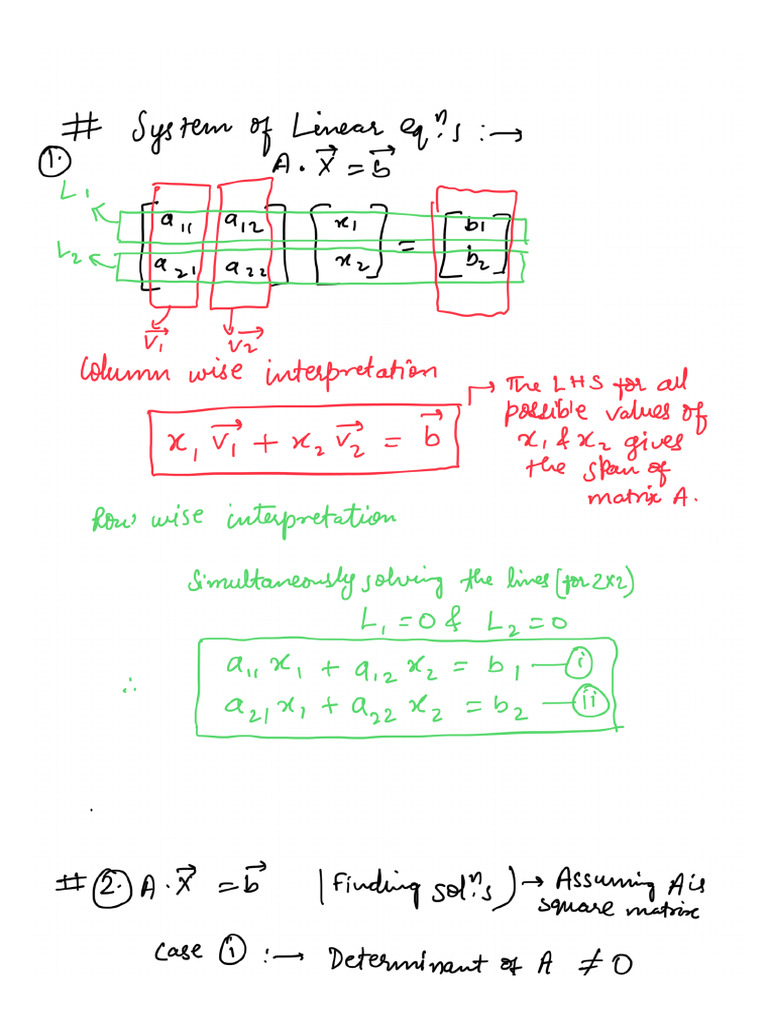 # System of Linear eqⁿ.s :→
1. A . X⃗ = b⃗
L₁
L₂
[ a₁₁ a₁₂ ] [ x₁ ] = [ b₁ ]
[ a₂₁ a₂₂ ] [ x₂ ] [ b₂ ]
v⃗₁ v⃗₂
Column wise interpretation
x₁ v⃗₁ + x₂ v⃗₂ = b⃗
→ The LHS for all
possible values of
x₁ & x₂ gives
the span of
matrix A.
Row wise interpretation
Simultaneously solving the lines (for 2x2)
L₁ = 0 & L₂ = 0
∴ a₁₁ x₁ + a₁₂ x₂ = b₁ — i
a₂₁ x₁ + a₂₂ x₂ = b₂ — ii
# 2. A . X⃗ = b⃗ (Finding solⁿ.s) → Assuming A is
square matrix
Case i :→ Determinant of A ≠ 0